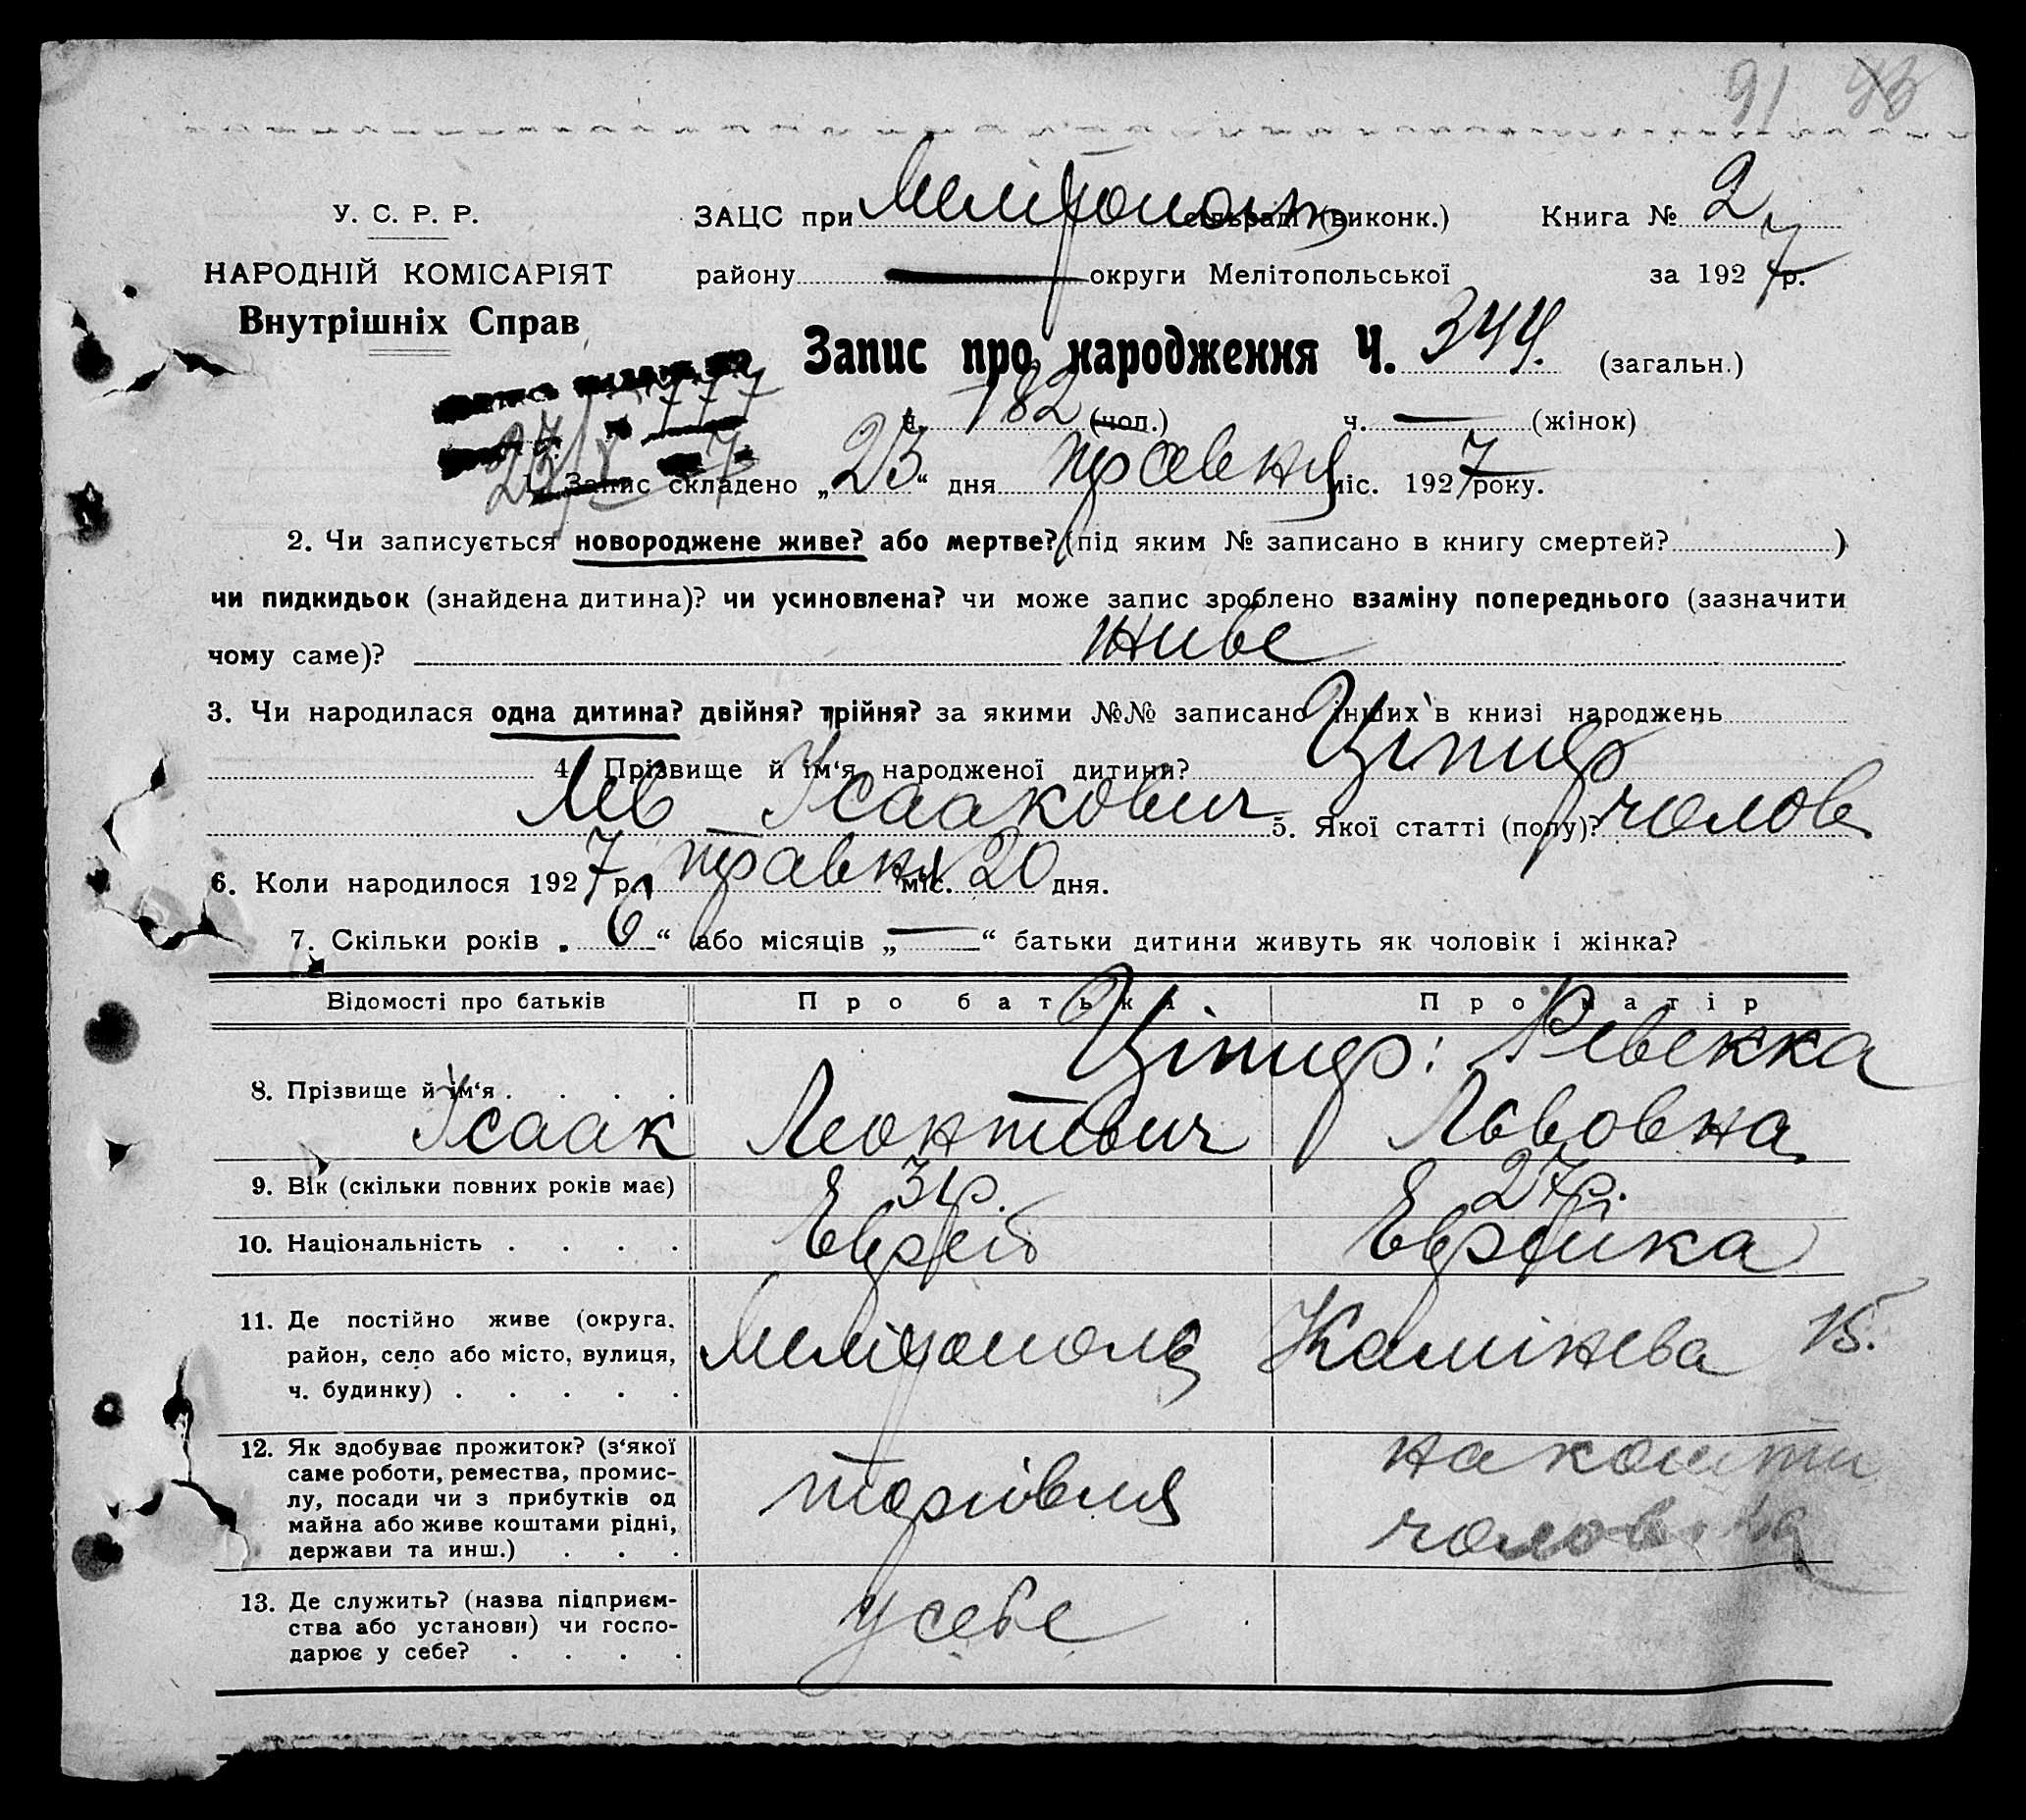 91 43
У. С. Р. Р.
ЗАЦС при Мелітополь сільраді (виконк.) Книга № 2
НАРОДНІЙ КОМІСАРІЯТ
району — округи Мелітопольської за 1927 р.
Внутрішніх Справ
Запис про народження Ч. 344. (загальн.)
777
ч. 182 (чол.) ч. — (жінок)
27/V 7
1. Запис складено „23“ дня травня міс. 1927 року.
2. Чи записується новороджене живе? або мертве? (під яким № записано в книгу смертей? )
чи пидкидьок (знайдена дитина)? чи усиновлена? чи може запис зроблено взаміну попереднього (зазначити
чому саме)? живе
3. Чи народилася одна дитина? двійня? трійня? за якими №№ записано інших в книзі народжень
4. Прізвище й ім‘я народженої дитини? Ціпир
Лев Ісаакович 5. Якої статті (полу)? чолов
6. Коли народилося 1927 р. травня міс. 20 дня.
7. Скільки років „6“ або місяців „—“ батьки дитини живуть як чоловік і жінка?
Відомості про батьків Про батька Про матір
Ціпир: Ревекка
8. Прізвище й ім‘я . . . .
Ісаак Леонтович Львовна
9. Вік (скільки повних років має) 31р. 27р.
10. Національність . . . . Еврей Еврейка
11. Де постійно живе (округа,
район, село або місто, вулиця, Мелітополь Камінева 15.
ч. будинку) . . . . .
12. Як здобуває прожиток? (з‘якої на кошти
саме роботи, ремества, промис-
лу, посади чи з прибутків од торговля
майна або живе коштами рідні, чоловіка
держави та инш.) . . .
13. Де служить? (назва підприєм-
ства або установи) чи госпо- у себе
дарює у себе? . . . .